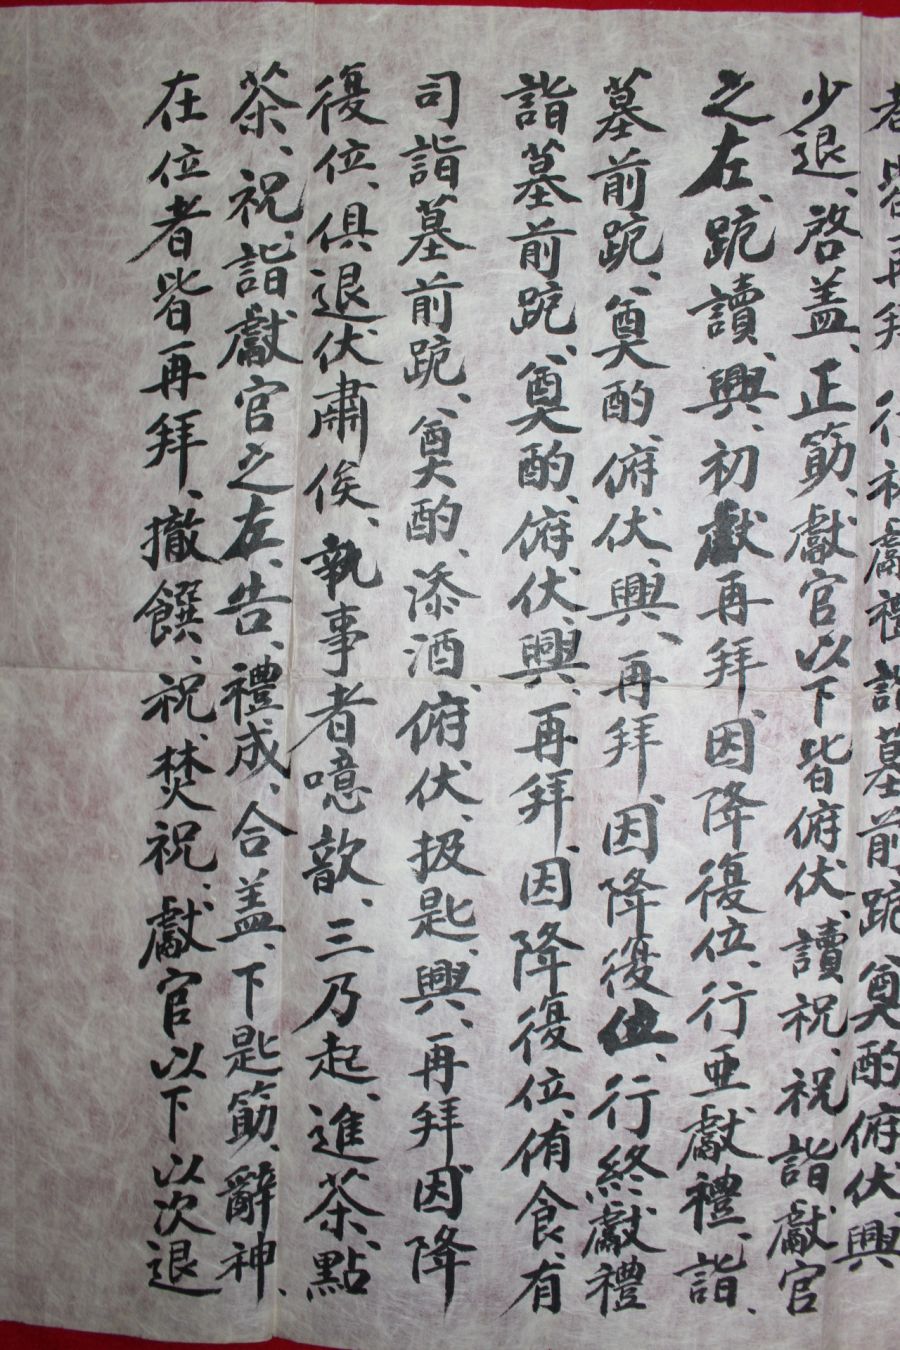 者皆再拜、行初獻禮、詣墓前跪、奠酌、俯伏、興
少退、啓盖、正筯、獻官以下皆俯伏、讀祝、祝詣獻官
之左、跪讀、興、初獻再拜、因降復位、行亜獻禮、詣、
墓前跪、奠酌、俯伏、興、再拜、因降復位、行終獻禮
詣墓前跪、奠酌、俯伏、興、再拜、因降復位、侑食、有
司詣墓前跪、奠酌、添酒、俯伏、扱匙、興、再拜、因降
復位、俱退伏肅俟、執事者噫歆、三乃起、進茶、點
茶、祝、詣獻官之左、告、禮成、合盖、下匙筯、辭神、
在位者皆再拜、撤饌、祝、焚祝、獻官以下以次退